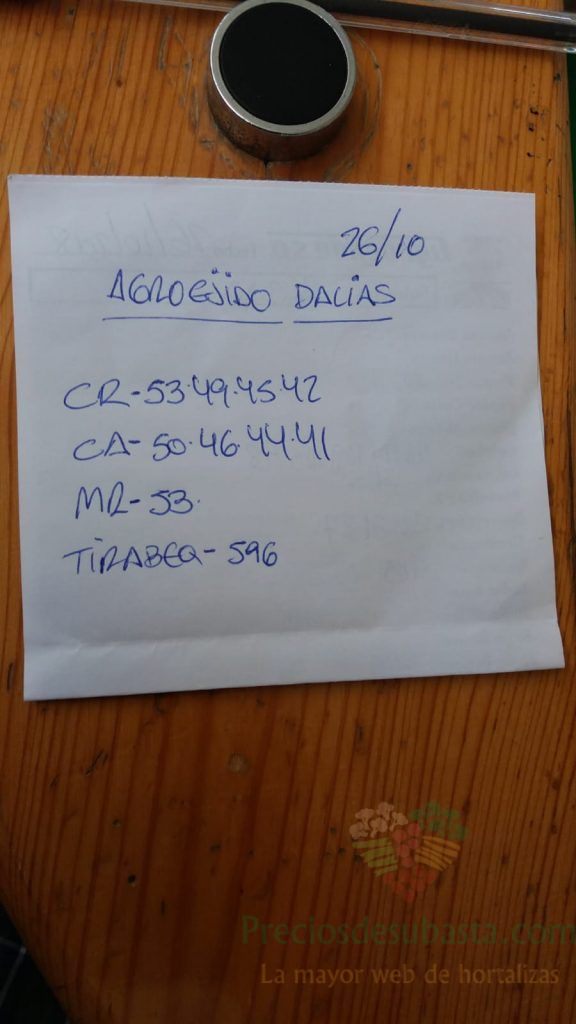 26/10
AGROEJIDO DALIAS
CR-53.49.45.42
CA-50.46.44.41
MR-53.
TiRABEQ-596
Preciosdesubasta.com
La mayor web de hortalizas